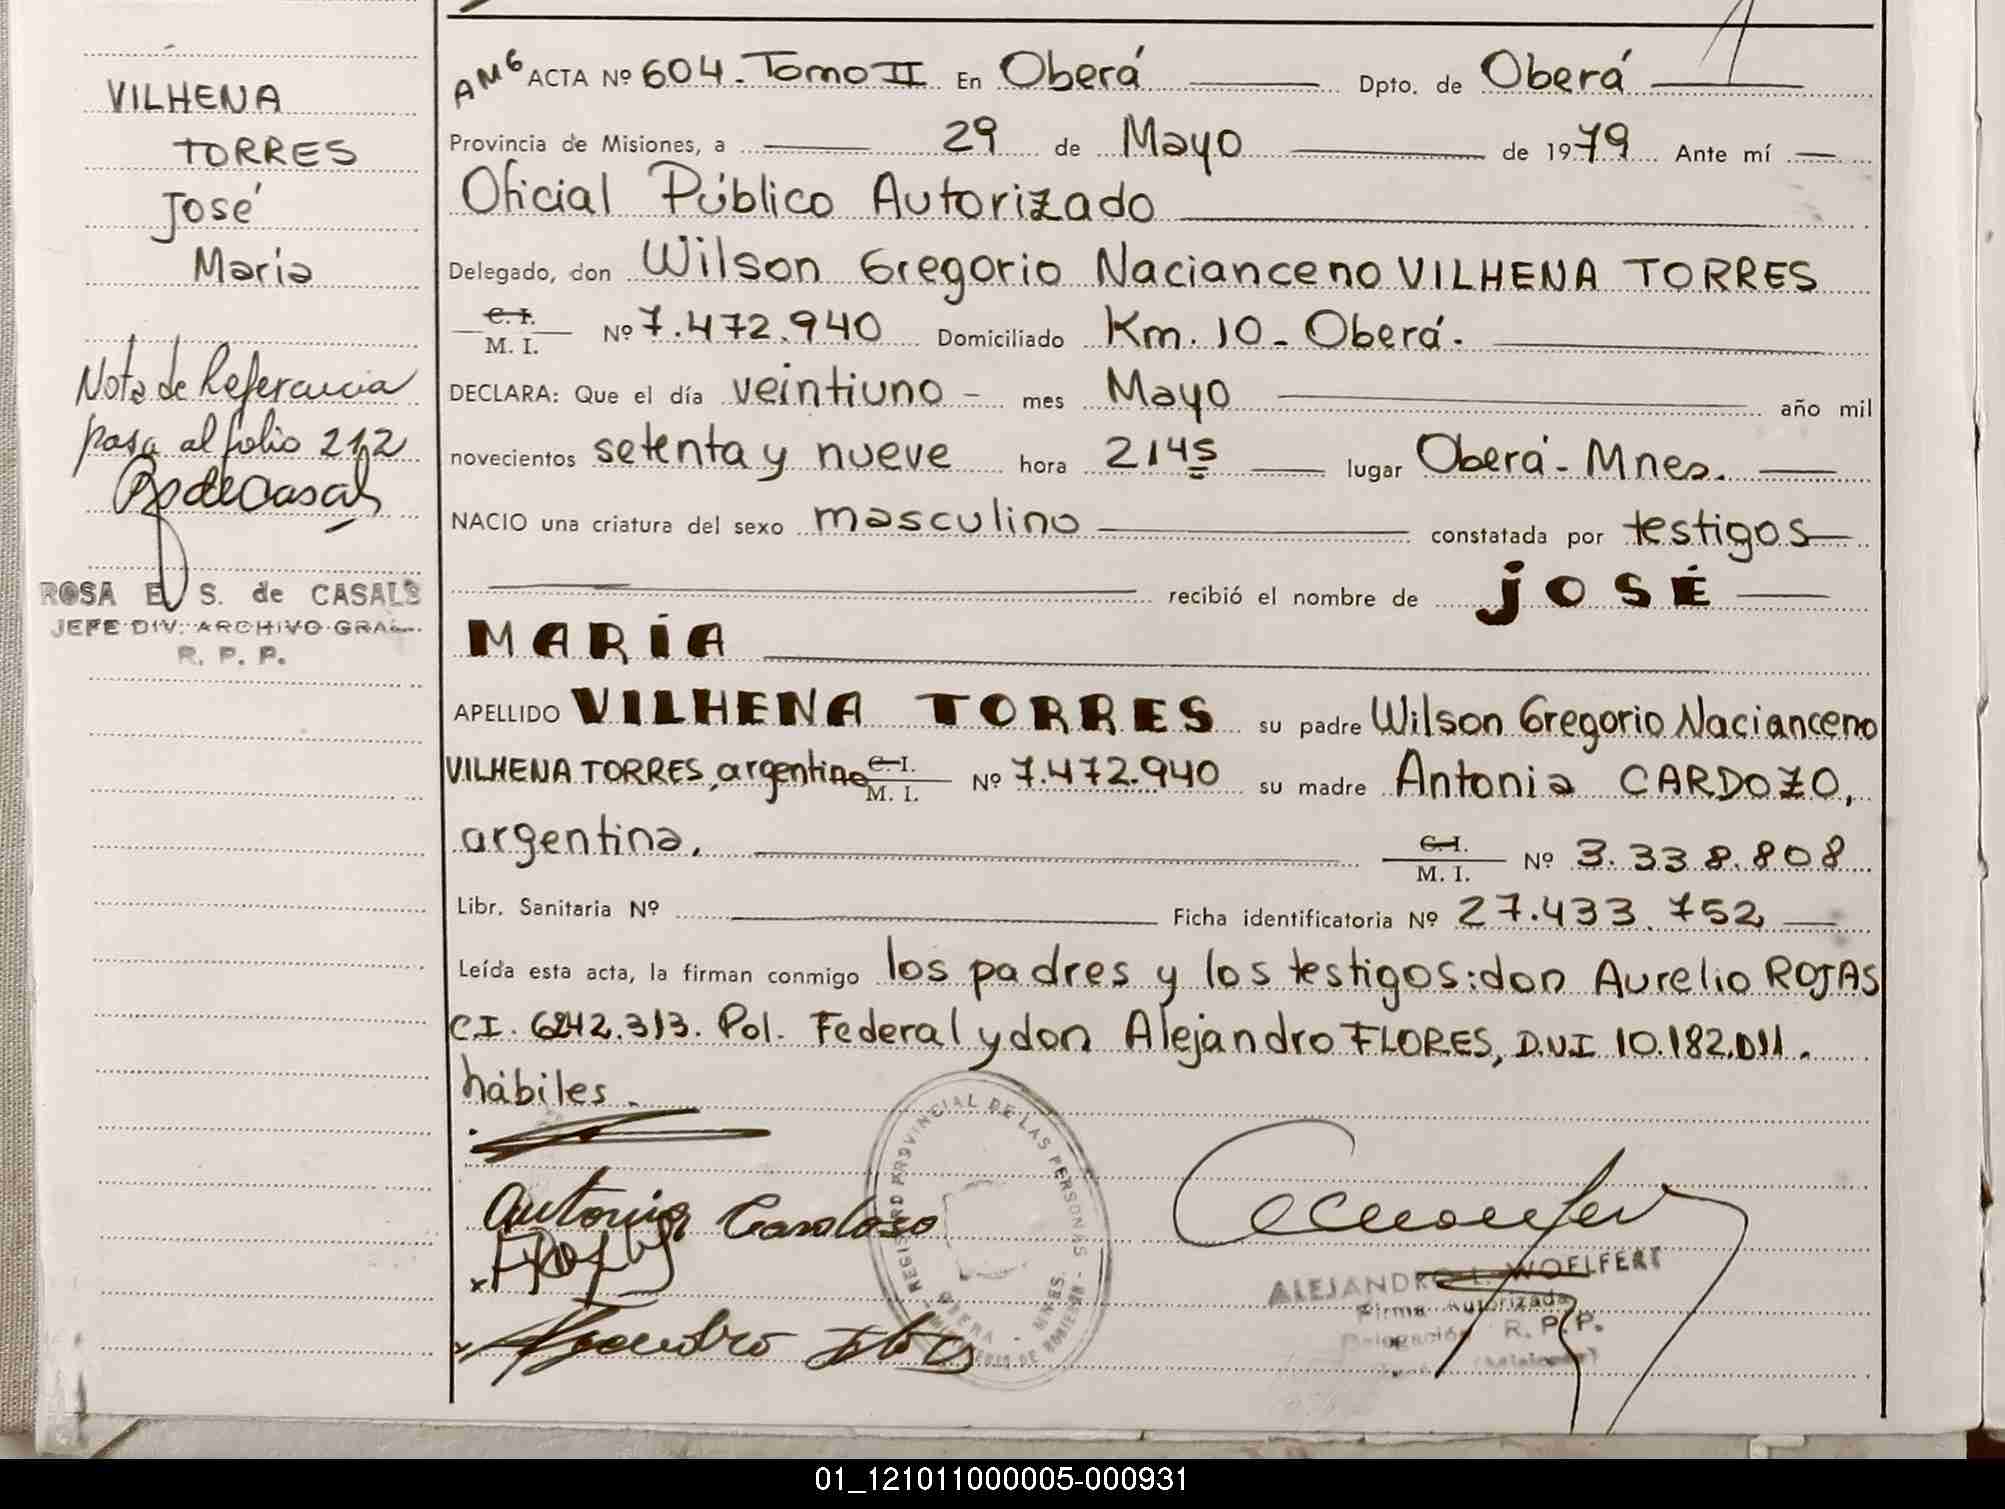 VILHENA
TORRES
José
María
Nota de Referencia
pasa al folio 212
ROSA E. S. de CASALS
JEFE DIV. ARCHIVO GRAL.
R. P. P.
AMG ACTA Nº 604. Tomo II En Oberá Dpto. de Oberá
Provincia de Misiones, a 29 de Mayo de 1979 Ante mí
Oficial Público Autorizado
Delegado, don Wilson Gregorio Nacianceno VILHENA TORRES
C. I. M. I. Nº 7.472.940 Domiciliado Km. 10 - Oberá.
DECLARA: Que el día veintiuno - mes Mayo año mil
novecientos setenta y nueve hora 2145 lugar Oberá - Mnes.
NACIO una criatura del sexo masculino constatada por testigos
recibió el nombre de JOSÉ
MARÍA
APELLIDO VILHENA TORRES su padre Wilson Gregorio Nacianceno
VILHENA TORRES, argentino C. I. M. I. Nº 7.472.940 su madre Antonia CARDOZO,
argentina. C. I. M. I. Nº 3.338.808
Libr. Sanitaria Nº Ficha identificatoria Nº 27.433.752
Leída esta acta, la firman conmigo los padres y los testigos: don Aurelio ROJAS
C.I. 6242.313. Pol. Federal y don Alejandro FLORES, D.N.I 10.182.011.
hábiles.
Antonia Cardozo
REGISTRO PROVINCIAL DE LAS PERSONAS
OBERA - MNES.
MINISTERIO DE GOBIERNO
ALEJANDRO L. WOELFERT
Firma Autorizada
Delegación R. P. P.
(Misiones)
01_121011000005-000931